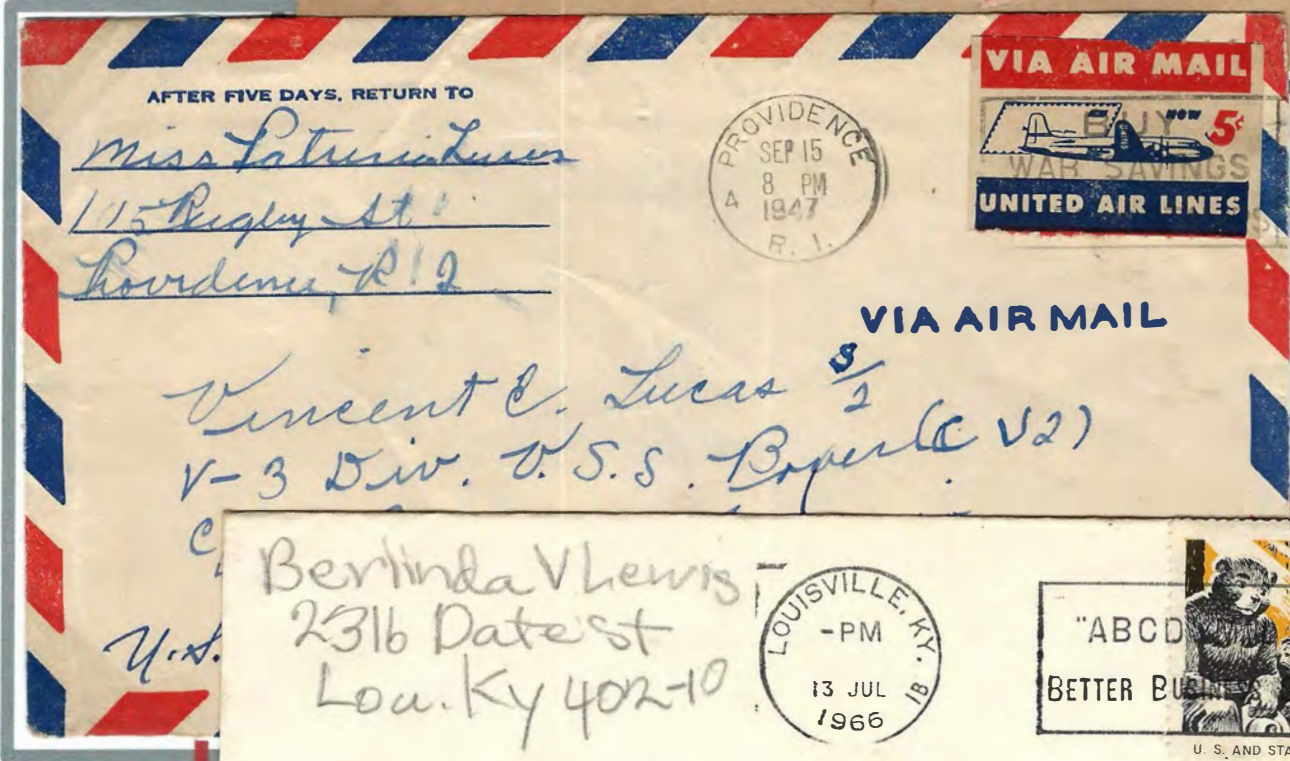 AFTER FIVE DAYS, RETURN TO
Miss Patricia Lucas
Rugby St
Providence, R I 2
PROVIDENCE
SEP 15
8 PM
1947
R. I.
VIA AIR MAIL
NOW 5¢
BUY
WAR SAVINGS
UNITED AIR LINES
VIA AIR MAIL
Vincent C. Lucas S/2
V-3 Div. U.S.S. Boxer (C V2)
U.S.
Berlinda V Lewis
2316 Date St
Lou. Ky 402-10
LOUISVILLE, KY.
-PM
13 JUL
1966
"ABCD
BETTER BUSINESS
U. S. AND STA